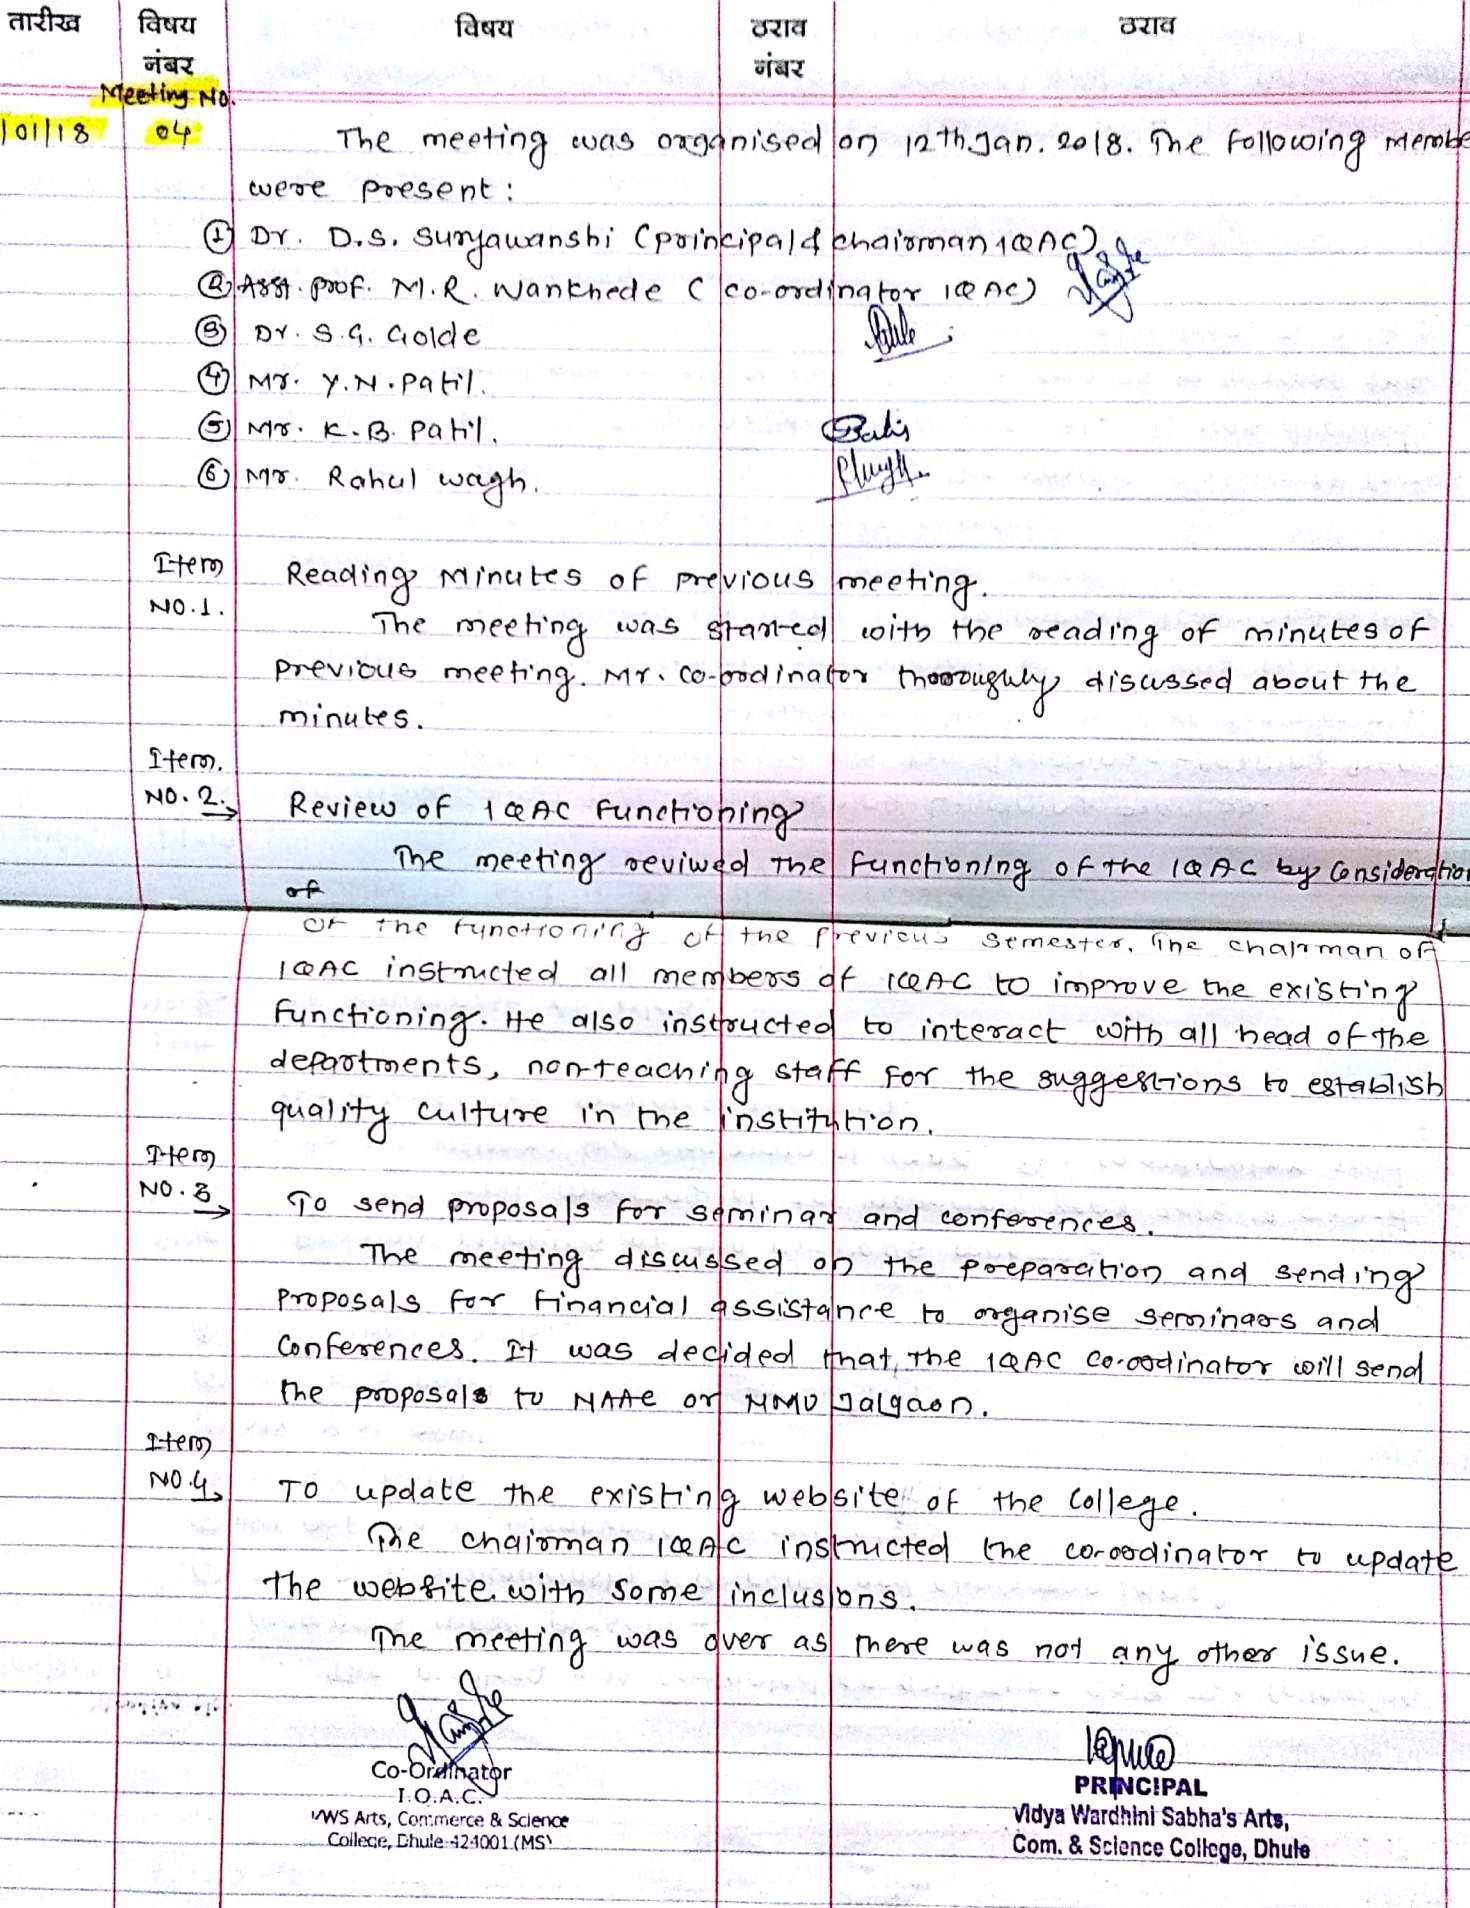 तारीख विषय नंबर विषय ठराव नंबर ठराव
Meeting No.
/01/18 04 The meeting was organised on 12th Jan. 2018. The following Membe
were present:
① Dr. D.S. Suryawanshi (principal & chairman IQAC)
② Asst. prof. M.R. Wankhede (co-ordinator IQAC)
③ Dr. S.G. Golde
④ Mr. Y.N. Patil.
⑤ Mr. K.B. Patil.
⑥ Mr. Rahul Wagh.
Item
NO.1. Reading Minutes of previous meeting.
The meeting was started with the reading of minutes of
previous meeting. Mr. Co-ordinator thoroughly discussed about the
minutes.
Item.
NO. 2. → Review of IQAC Functioning
The meeting reviwed the functioning of the IQAC by Consideration
of
of the functioning of the previous semester. The chairman of
IQAC instructed all members of IQAC to improve the existing
functioning. He also instructed to interact with all head of the
departments, non-teaching staff for the suggestions to establish
quality culture in the institution.
Item
NO. 3 → To send proposals for seminar and conferences.
The meeting discussed on the preparation and sending
proposals for financial assistance to organise seminars and
Conferences. It was decided that, the IQAC co-ordinator will send
the proposals to NAAC or NMU Jalgaon.
Item
NO.4 → To update the existing website of the College.
The chairman IQAC instructed the co-ordinator to update
the website with some inclusions.
The meeting was over as there was not any other issue.
Co-Ordinator
I.Q.A.C.
VWS Arts, Commerce & Science
College, Dhule-424001 (MS)
PRINCIPAL
Vidya Wardhini Sabha's Arts,
Com. & Science College, Dhule